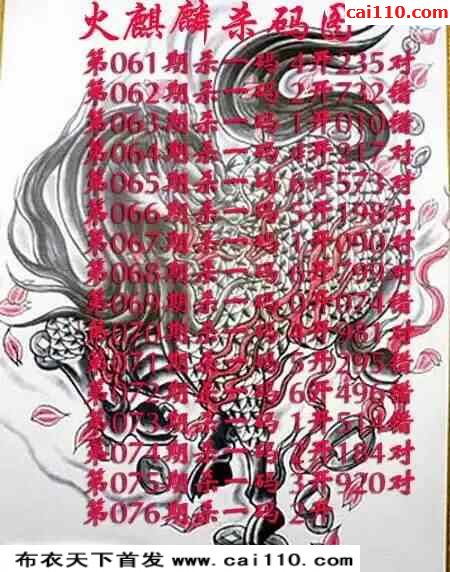 cai110.com
火麒麟杀码图
第061期杀一码 4开235对
第062期杀一码 2开732错
第063期杀一码 1开010错
第064期杀一码 4开217对
第065期杀一码 6开573对
第066期杀一码 5开198对
第067期杀一码 1开090对
第068期杀一码 6开799对
第069期杀一码 9开974错
第070期杀一码 开
第071期杀一码 5开295错
第072期杀一码 6开496错
第073期杀一码 1开 错
第074期杀一码 2开184对
第075期杀一码 3开920对
第076期杀一码 2开
布衣天下首发 www.cai110.com